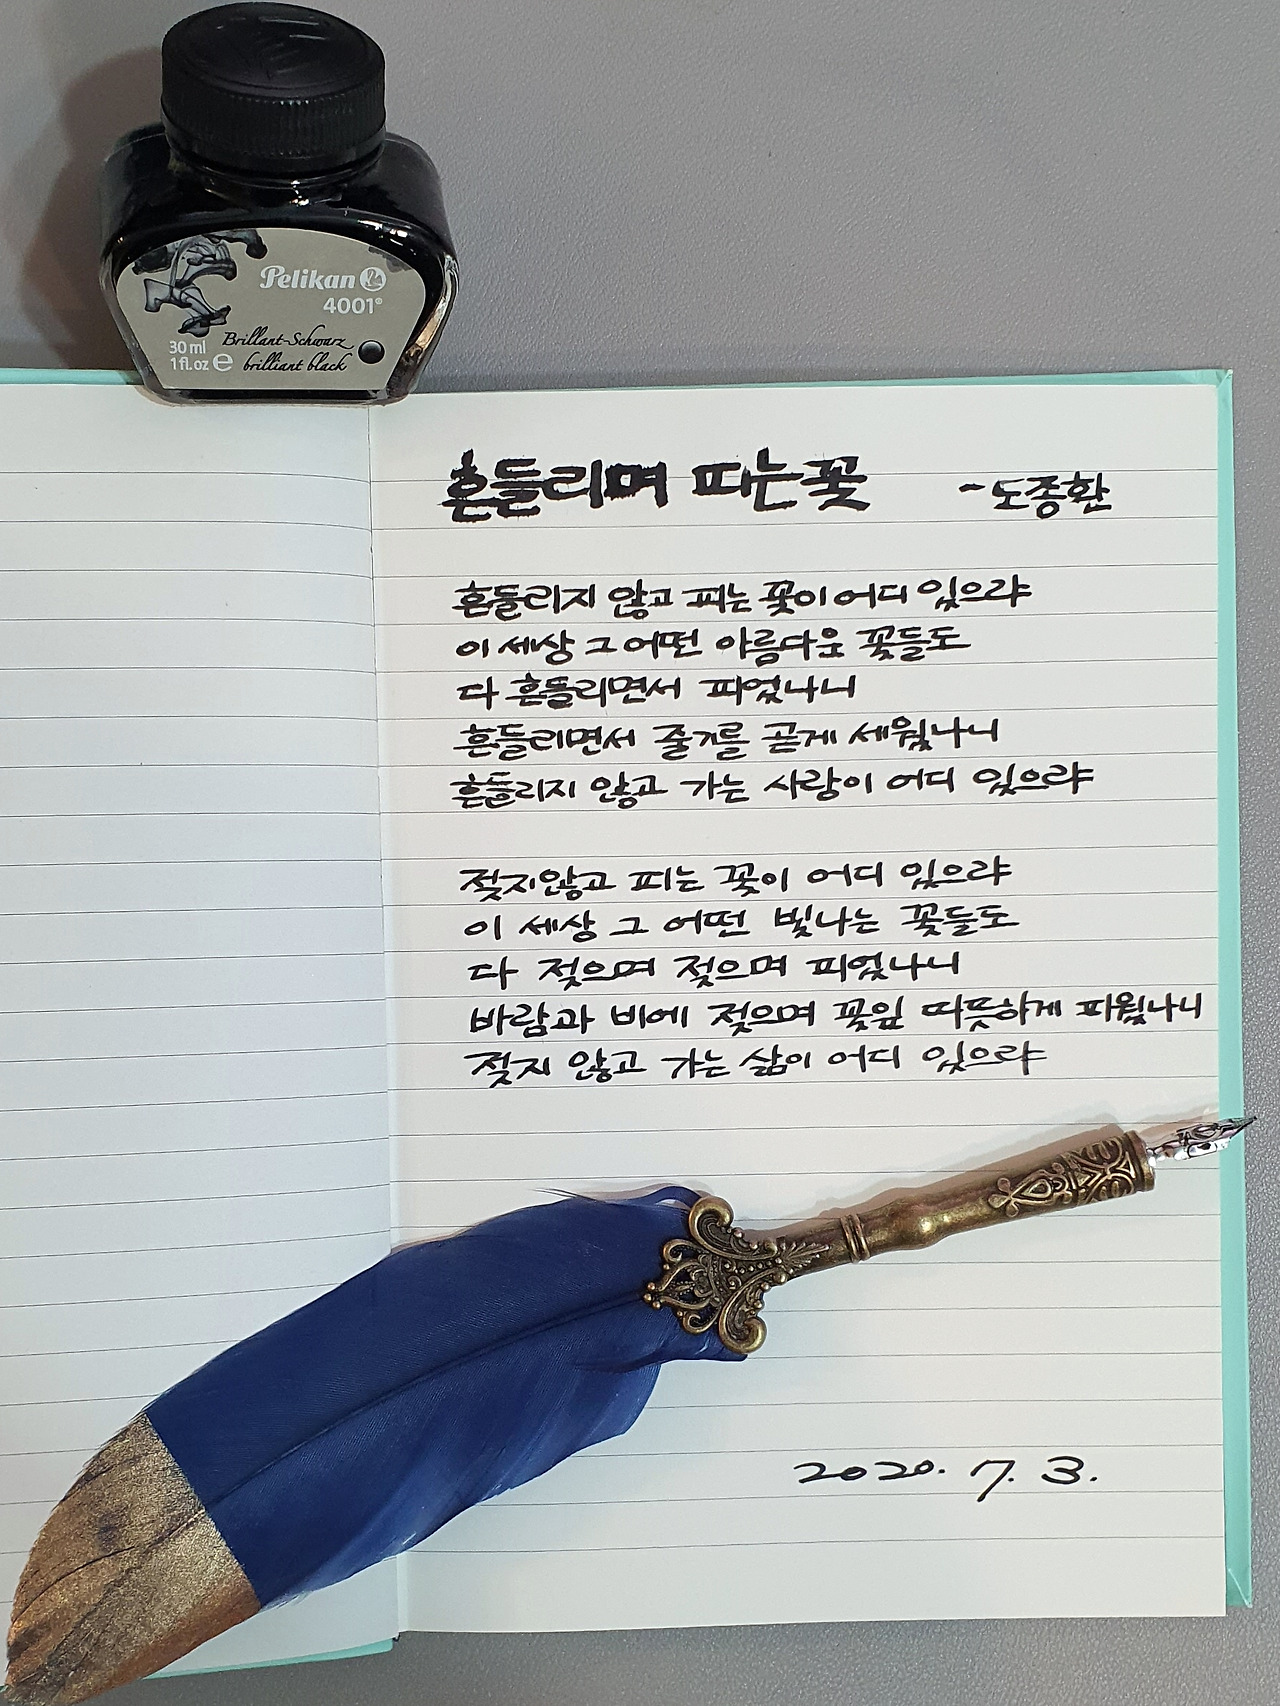 Pelikan
4001®
Brillant-Schwarz
30 ml
1 fl.oz e brilliant black
흔들리며 피는꽃 -도종환
흔들리지 않고 피는 꽃이 어디 있으랴
이 세상 그 어떤 아름다운 꽃들도
다 흔들리면서 피었나니
흔들리면서 줄기를 곧게 세웠나니
흔들리지 않고 가는 사랑이 어디 있으랴
젖지않고 피는 꽃이 어디 있으랴
이 세상 그 어떤 빛나는 꽃들도
다 젖으며 젖으며 피었나니
바람과 비에 젖으며 꽃잎 따뜻하게 피웠나니
젖지 않고 가는 삶이 어디 있으랴
2020. 7. 3.